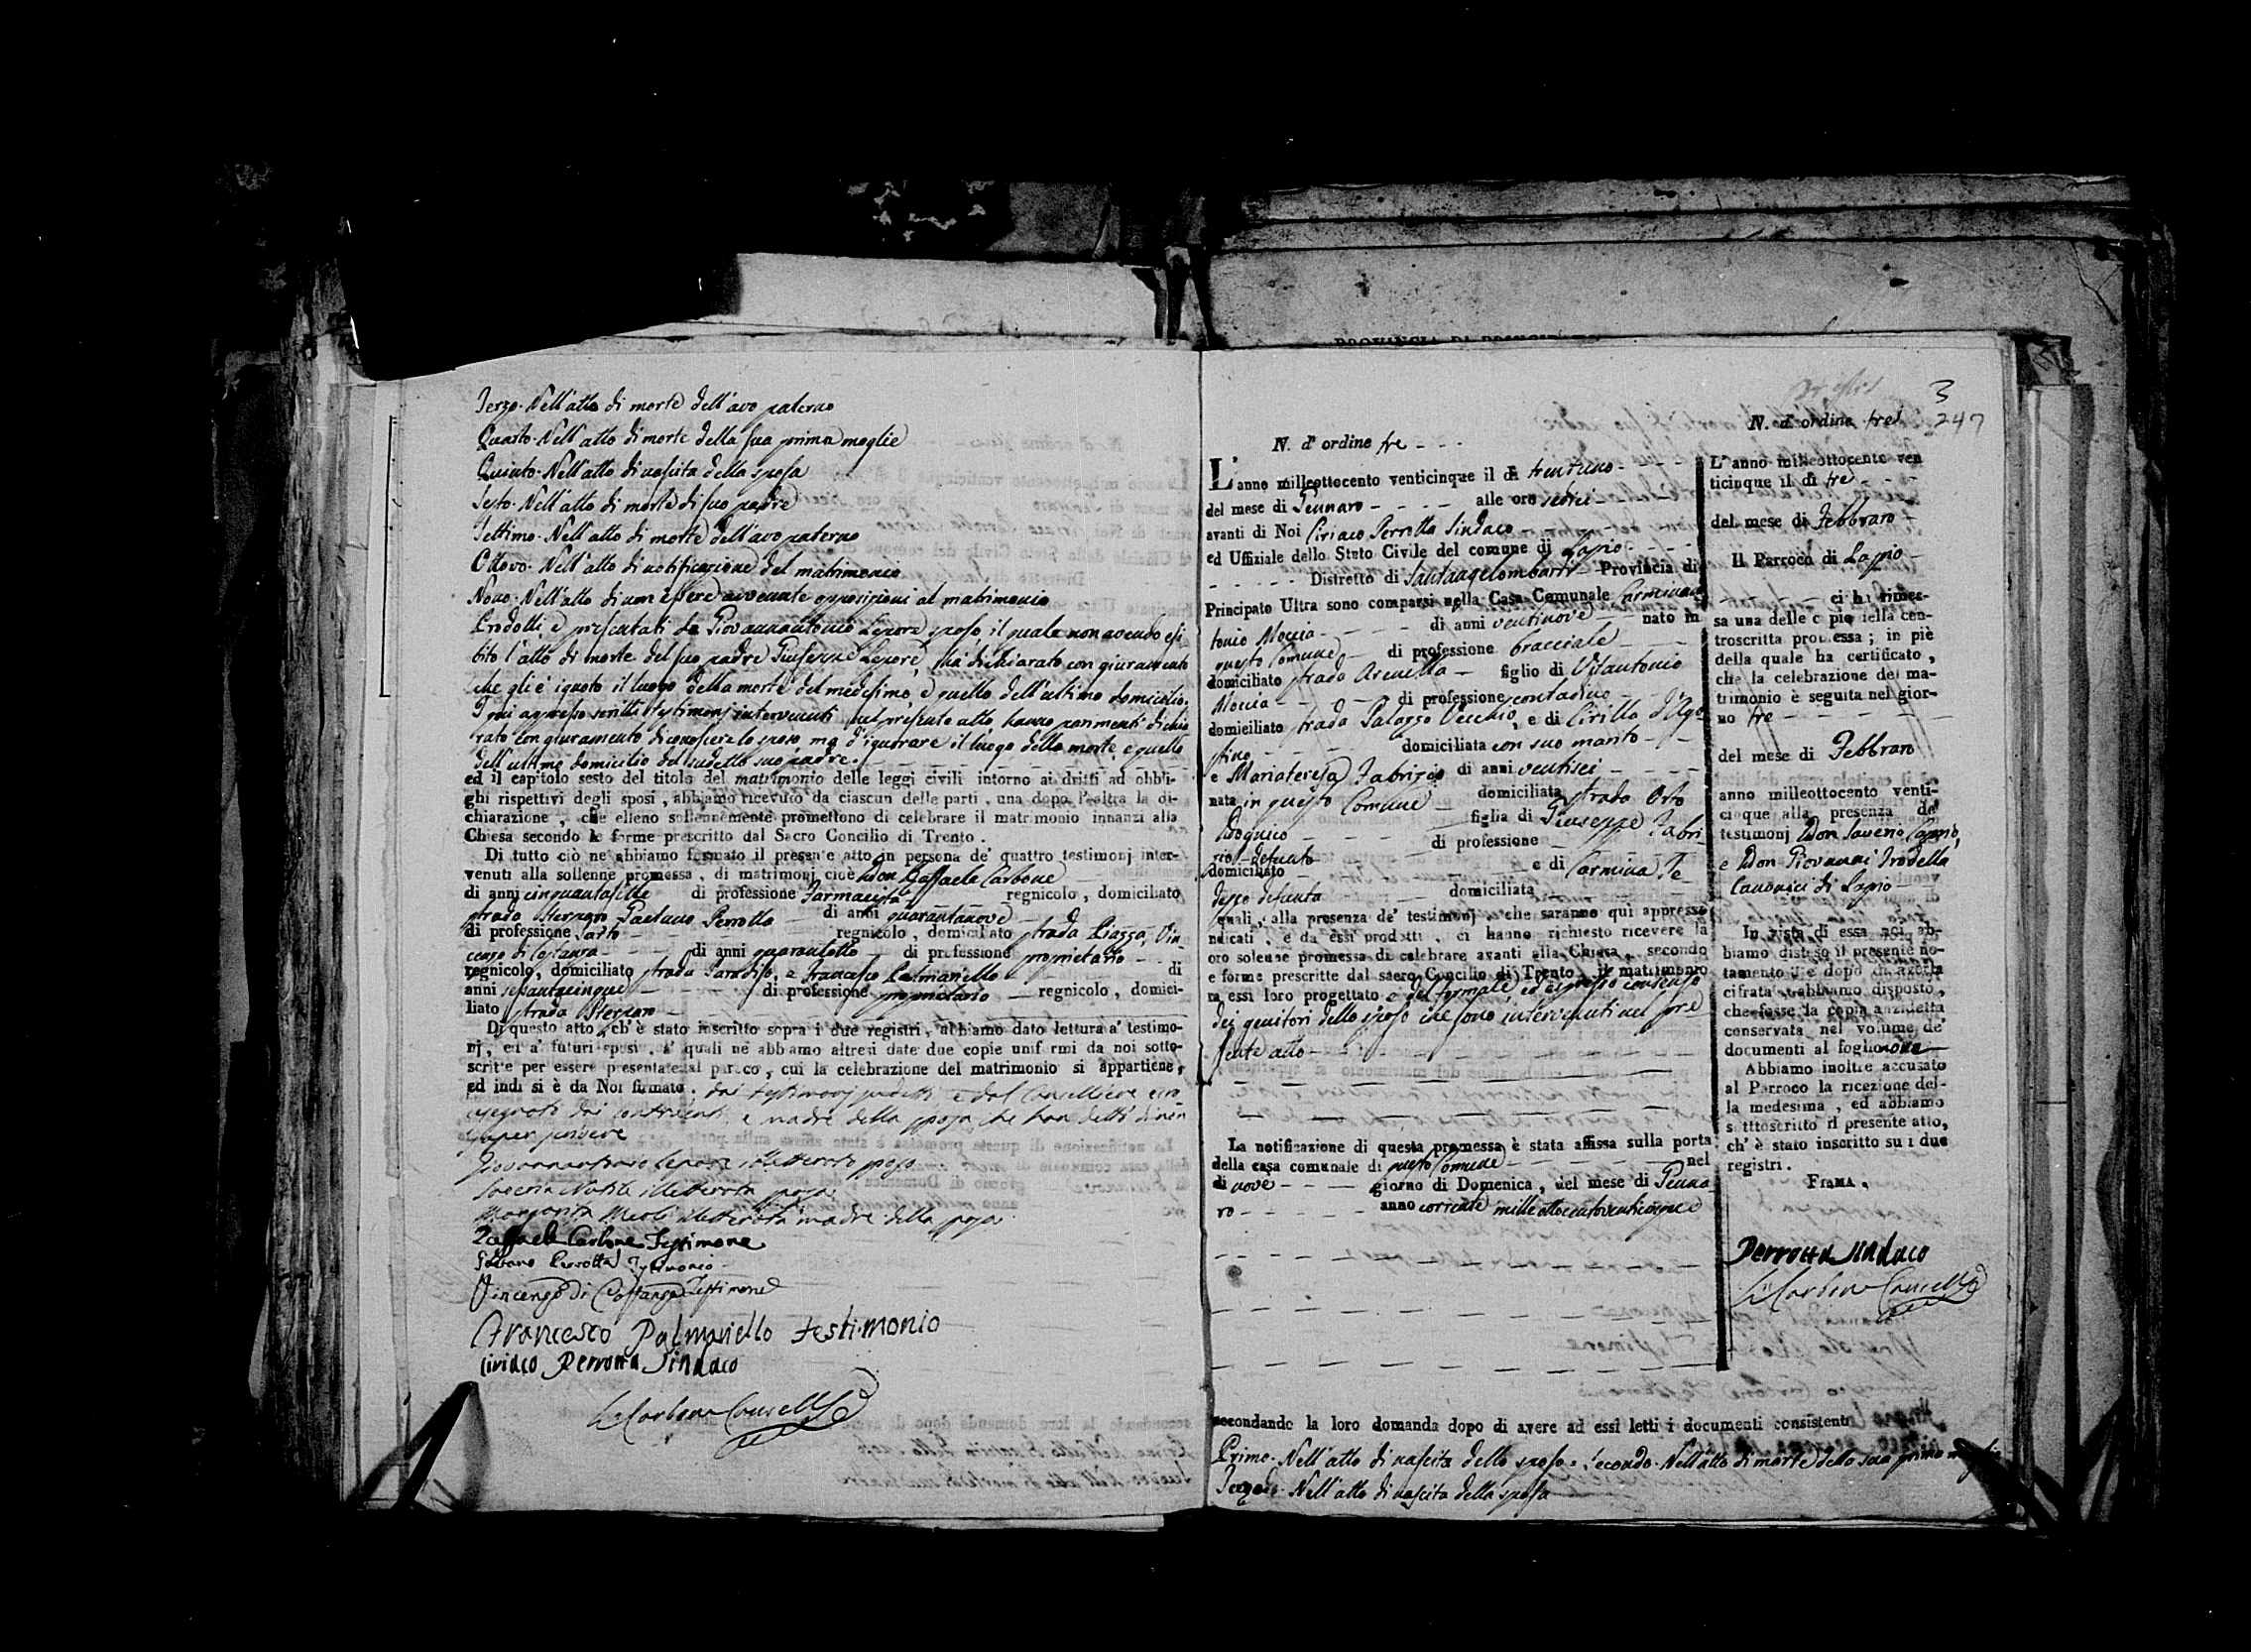 Terzo. Nell'atto di morte dell'avo paterno
Quarto. Nell'atto di morte della sua prima moglie
Quinto. Nell'atto di nascita della sposa
Sesto. Nell'atto di morte di suo padre
Settimo. Nell'atto di morte dell'avo paterno
Ottavo. Nell'atto di notificazione del matrimonio
Nono. Nell'atto di non essere avvenute opposizioni al matrimonio
Prodotti, e presentati da Giovannantonio Lepore sposo, il quale non avendo esi
bito l'atto di morte del suo padre Giuseppe Lepore, ha dichiarato con giuramento
che gli è ignoto il luogo della morte del medesimo, e quello dell'ultimo domicilio.
I qui appresso scritti testimonj intervenuti nel presente atto hanno parimenti dichia
rato con giuramento di conoscere lo sposo, ma d'ignorare il luogo della morte, e quello
dell'ultimo domicilio del sudetto suo padre.
ed il capitolo sesto del titolo del matrimonio delle leggi civili intorno ai dritti ad obbli-
ghi rispettivi degli sposi, abbiamo ricevuto da ciascun delle parti, una dopo l'altra la di-
chiarazione, che elleno sollennemente promettono di celebrare il matrimonio innanzi alla
Chiesa secondo le forme prescritto dal Sacro Concilio di Trento.
Di tutto ciò ne abbiamo formato il presente atto in persona de' quattro testimonj inter-
venuti alla sollenne promessa, di matrimonj cioè Don Raffaele Carbone
di anni cinquantasette di professione Farmacista regnicolo, domiciliato
strada Gaetano Perrotta di anni quarantanove
di professione Sarto regnicolo, domiciliato strada Piazza, Vin
cenzo di Costanza di anni quarantotto di professione proprietario
regnicolo, domiciliato strada Paradiso, e Francesco Palmariello di
anni sessantacinque di professione proprietario regnicolo, domici-
liato strada
Di questo atto, ch'è stato inscritto sopra i due registri, abbiamo dato lettura a' testimo-
nj, ed a' futuri sposi, a' quali ne abbiamo altresì date due copie uniformi da noi sotto-
scritte per essere presentate al parroco, cui la celebrazione del matrimonio si appartiene,
ed indi si è da Noi firmato, dai testimonj sudetti e dal Cancelliere
dai contraenti e madre della sposa che han detto di non
saper scrivere
Giovannantonio Lepore illetterato sposo
illetterata sposa
Margarita Meoli illetterata madre della sposa
Raffaele Carbone Testimone
Gaetano Perrotta Testimonio
Vincenzo di Costanza Testimone
Francesco Palmariello testimonio
Ciriaco Perrotta Sindaco
Carbone Cancelliere
3
247
N. d' ordine tre
L'anno milleottocento venticinque il dì trentuno
del mese di Gennaro alle ore sedici
avanti di Noi Ciriaco Perrotta Sindaco
ed Uffiziale dello Stato Civile del comune di Lapio
Distretto di Santangelombardi Provincia di
Principato Ultra sono comparsi nella Casa Comunale Carminan
tonio Moccia di anni ventinove nato in
questo Comune di professione bracciale
domiciliato strada Arenella figlio di Vitantonio
Moccia di professione contadino
domiciliato strada Palazzo Vecchio, e di Cirilla d'Ago
stino domiciliata con suo marito
e Mariateresa Fabrizio di anni ventisei
nata in questo Comune domiciliata strada Orto
figlia di Giuseppe Fabri-
zio defunto di professione
domiciliato e di Carmina Te
desco defunta domiciliata
quali, alla presenza de' testimonj, che saranno qui appresso
indicati, e da essi prodotti, ci hanno richiesto ricevere la
oro solenne promessa di celebrare avanti alla Chiesa, secondo
e forme prescritte dal sacro Concilio di Trento, il matrimonio
ra essi loro progettato e del formale, ed espresso consenso
dei genitori dello sposo che sono intervenuti nel pre
sente atto
La notificazione di questa promessa è stata affissa sulla porta
della casa comunale di questo Comune nel
dì nove giorno di Domenica, del mese di Genna
ro anno corrente milleottocentoventicinque
secondando la loro domanda dopo di avere ad essi letti i documenti consistenti
Primo. Nell'atto di nascita dello sposo. Secondo. Nell'atto di morte della sua prima moglie
Terzo. Nell'atto di nascita della sposa
N. d' ordine tre
L'anno milleottocento ven
ticinque il dì tre
del mese di Febbraro
Il Parroco di Lapio
ci ha rimes-
sa una delle copie della con-
troscritta promessa; in piè
della quale ha certificato,
che la celebrazione del ma-
trimonio è seguita nel gior-
no tre
del mese di Febbraro
anno milleottocento venti-
cinque alla presenza de'
testimonj Don Saverio
e Don Giovanni Trodella
Canonici di Lapio
In vista di essa noi ab-
biamo disteso il presente no-
tamento e dopo di averla
cifrata abbiamo disposto,
che fosse la copia anzidetta
conservata nel volume de'
documenti al foglio
Abbiamo inoltre accusato
al Parroco la ricezione del-
la medesima, ed abbiamo
sotttoscritto il presente atto,
ch'è stato inscritto su i due
registri.
FIRMA.
Perrotta Sindaco
Carbone Cancelliere